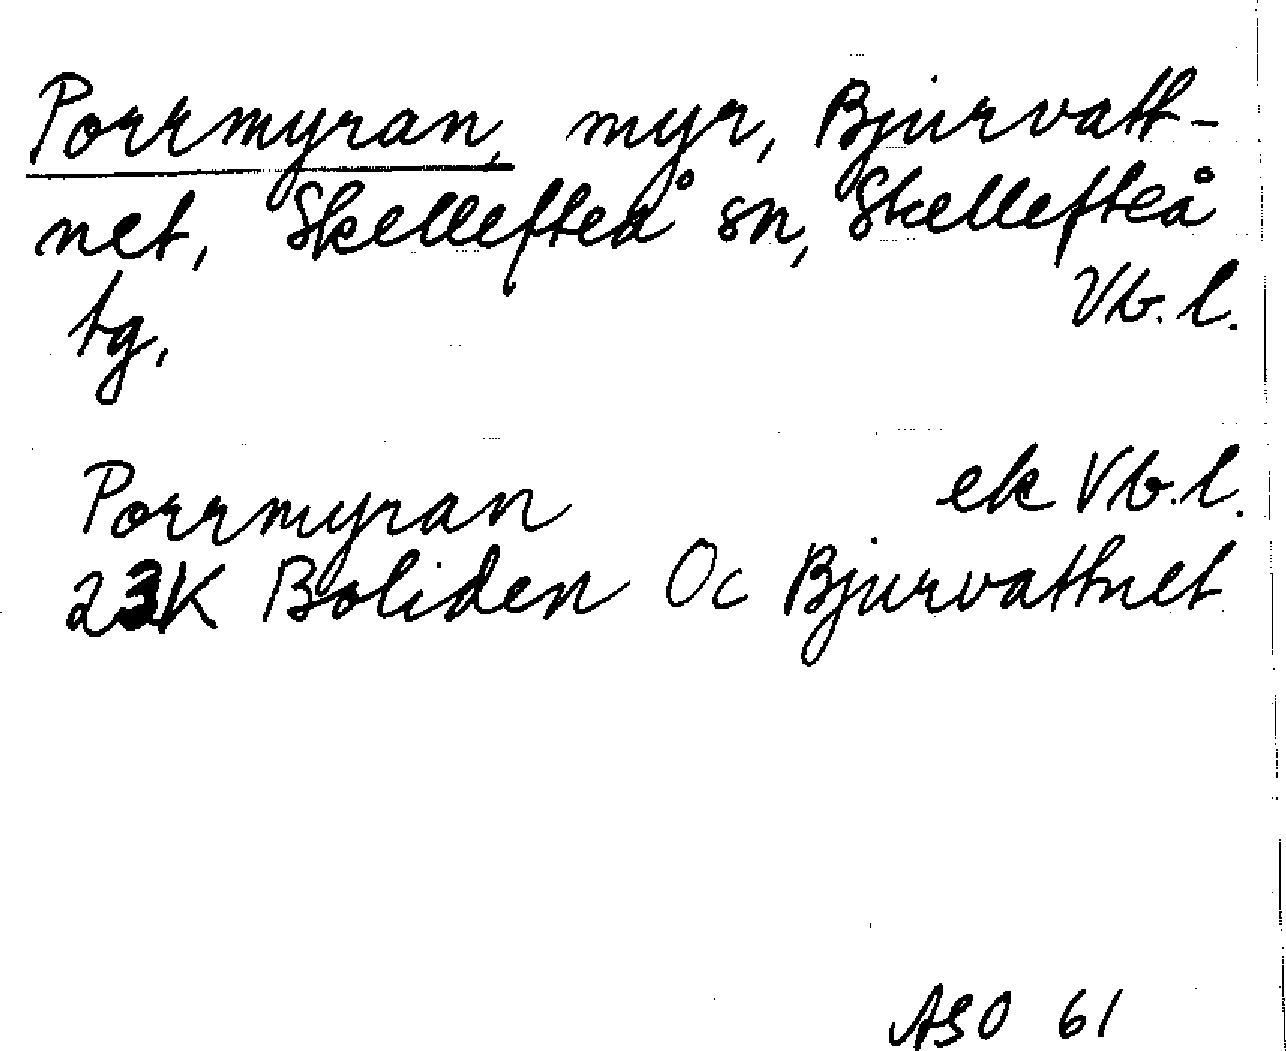 Porrmyran, myr, Bjurvatt-
net, Skellefteå sn, Skellefteå
tg, Vb. l.
Porrmyran ek Vb. l.
23K Boliden Oc Bjurvattnet
ASO 61